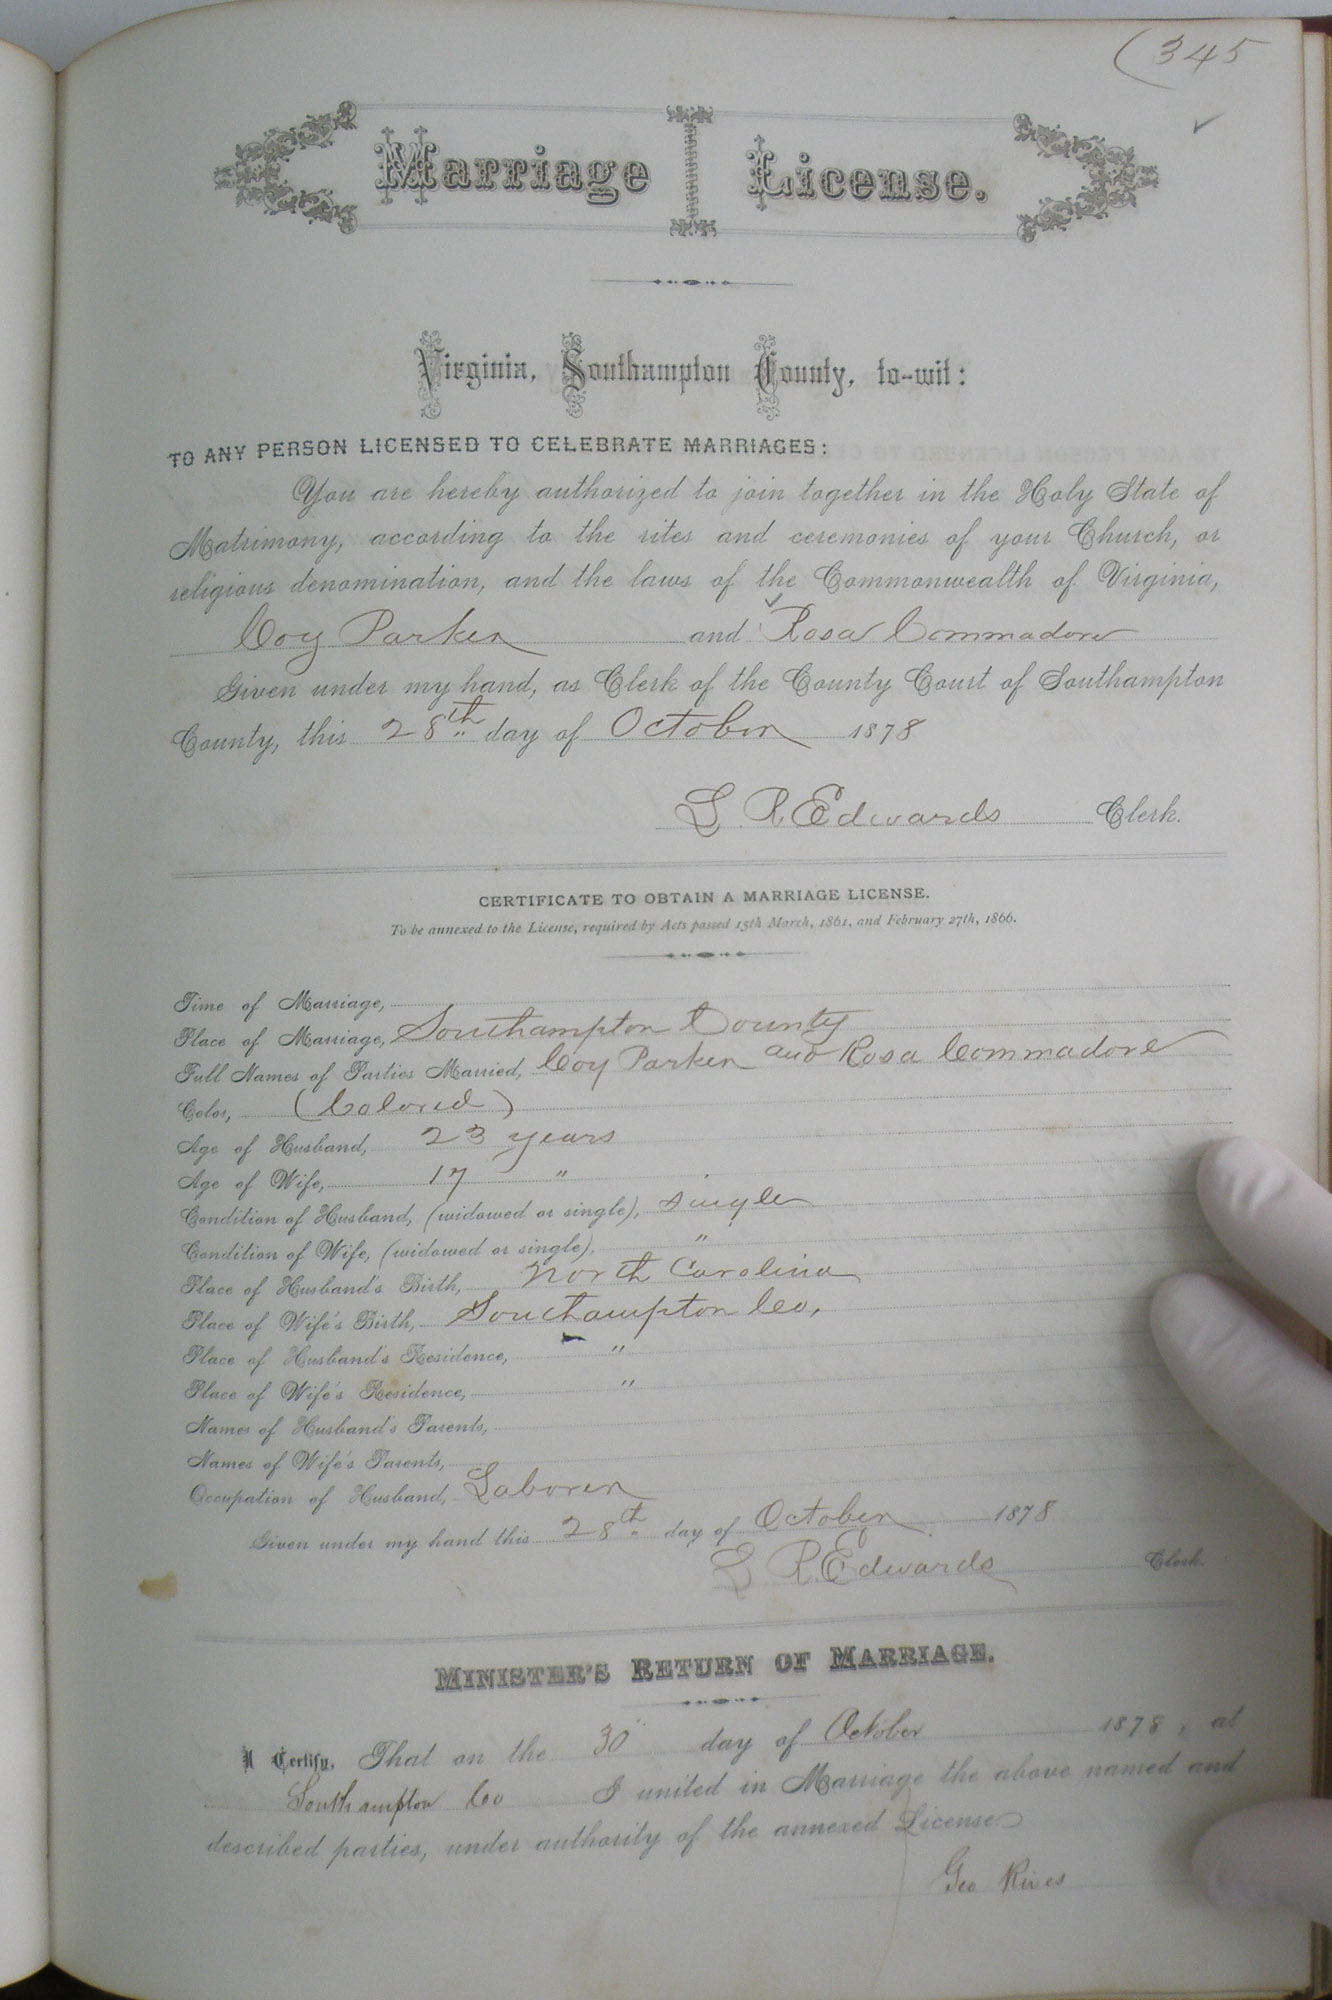 (345
Marriage License.
Virginia, Southampton County, to-wit:
TO ANY PERSON LICENSED TO CELEBRATE MARRIAGES:
You are hereby authorized to join together in the Holy State of
Matrimony, according to the rites and ceremonies of your Church, or
religious denomination, and the laws of the Commonwealth of Virginia,
Coy Parker and Rosa Commadore
Given under my hand, as Clerk of the County Court of Southampton
County, this 28th day of October 1878
L. R. Edwards Clerk.
CERTIFICATE TO OBTAIN A MARRIAGE LICENSE.
To be annexed to the License, required by Acts passed 15th March, 1861, and February 27th, 1866.
Time of Marriage,
Place of Marriage, Southampton County
Full Names of Parties Married, Coy Parker and Rosa Commadore
Color, (Colored)
Age of Husband, 23 years
Age of Wife, 17 "
Condition of Husband, (widowed or single), single
Condition of Wife, (widowed or single), "
Place of Husband's Birth, North Carolina
Place of Wife's Birth, Southampton Co,
Place of Husband's Residence, "
Place of Wife's Residence, "
Names of Husband's Parents,
Names of Wife's Parents,
Occupation of Husband, Laborer
Given under my hand this 28th day of October 1878
L R. Edwards Clerk.
MINISTER'S RETURN OF MARRIAGE.
I Certify, That on the 30" day of October 1878, at
Southampton Co I united in Marriage the above named and
described parties, under authority of the annexed License
Geo Rives